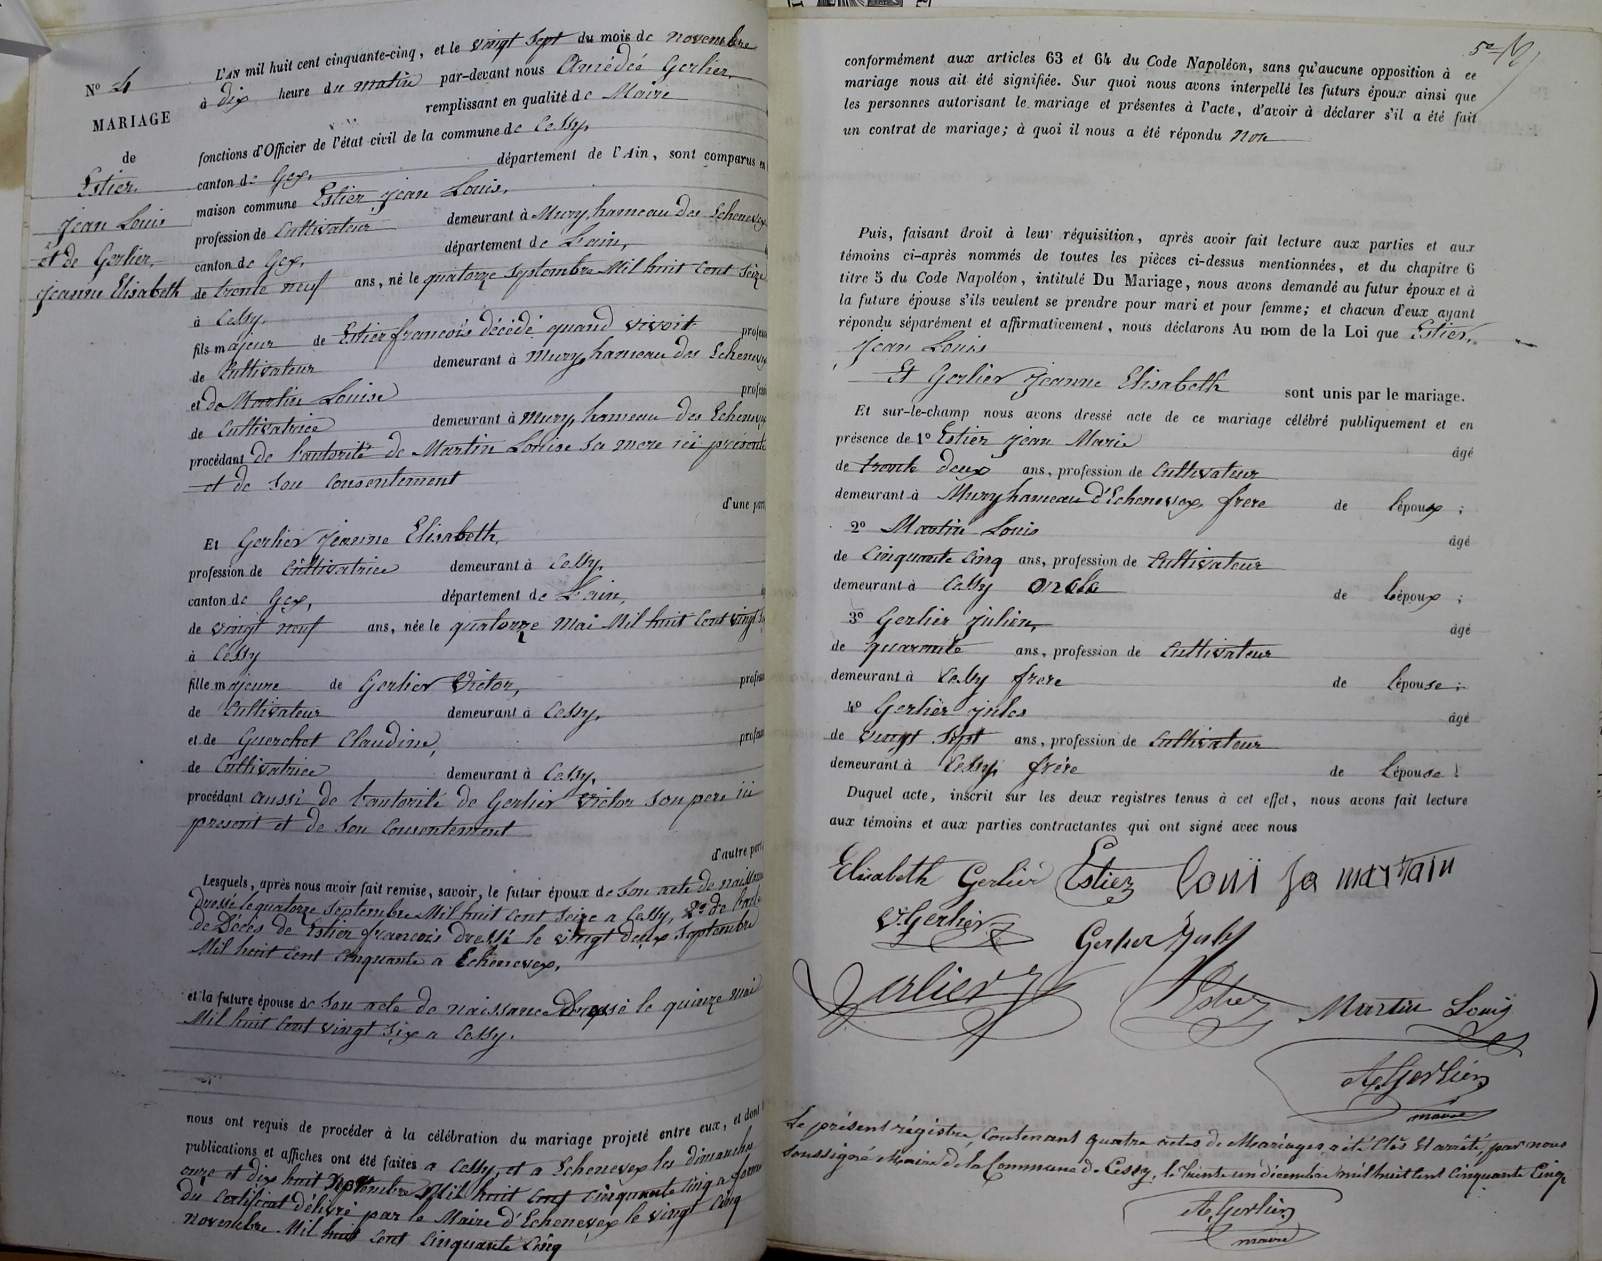 N° 4
MARIAGE
de
Estier
Jean Louis
et de Gerlier
Jeanne Elisabeth
L'AN mil huit cent cinquante-cinq, et le vingt sept du mois de novembre
à dix heure du matin par-devant nous Amédée Gerlier,
remplissant en qualité de Maire
fonctions d'Officier de l'état civil de la commune de Cessy,
canton de Gex, département de l'Ain, sont comparus en
maison commune Estier Jean Louis,
profession de Cultivateur demeurant à Mury, hameau des Echenevex
canton de Gex, département de L'ain,
de trente neuf ans, né le quatorze Septembre Mil huit Cent Seize
à Cessy,
fils majeur de Estier françois décédé quand vivoit
de Cultivateur demeurant à Mury hameau des Echenevex
et de Martin Louise
de Cultivatrice demeurant à Mury hameau des Echenevex
procédant de l'autorité de Martin Louise sa mere ici présente
et de son Consentement
d'une part
Et Gerlier Jeanne Elisabeth,
profession de Cultivatrice demeurant à Cessy,
canton de Gex, département de L'ain,
de vingt neuf ans, née le quatorze Mai Mil huit Cent vingt
à Cessy
fille majeure de Gerlier Victor,
de Cultivateur demeurant à Cessy,
et de Guerchet Claudine,
de Cultivatrice demeurant à Cessy,
procédant aussi de l'autorité de Gerlier Victor son pere ici
present et de son Consentement
d'autre part
Lesquels, après nous avoir fait remise, savoir, le futur époux de Son acte de naissance
Dressé le quatorze Septembre Mil huit Cent Seize a Cessy, 2° de l'acte
de Décès de Estier françois dressé le vingt deux Septembre
Mil huit Cent Cinquante a Echenevex,
et la future épouse de Son acte de naissance Dressé le quinze mai
Mil huit Cent vingt six a Cessy.
nous ont requis de procéder à la célébration du mariage projeté entre eux, et dont
publications et affiches ont été faites a Cessy, et a Echenevex les dimanches
onze et dix huit Novembre Mil huit Cent Cinquante Cinq a forme
du Certificat délivré par le Maire d'Echenevex le vingt Cinq
novembre Mil huit Cent Cinquante Cinq
conformément aux articles 63 et 64 du Code Napoléon, sans qu'aucune opposition à ce
mariage nous ait été signifiée. Sur quoi nous avons interpellé les futurs époux ainsi que
les personnes autorisant le mariage et présentes à l'acte, d'avoir à déclarer s'il a été fait
un contrat de mariage; à quoi il nous a été répondu Non
Puis, faisant droit à leur réquisition, après avoir fait lecture aux parties et aux
témoins ci-après nommés de toutes les pièces ci-dessus mentionnées, et du chapitre 6
titre 5 du Code Napoléon, intitulé Du Mariage, nous avons demandé au futur époux et à
la future épouse s'ils veulent se prendre pour mari et pour femme; et chacun d'eux ayant
répondu séparément et affirmativement, nous déclarons Au nom de la Loi que Estier,
Jean Louis
Et Gerlier Jeanne Elisabeth sont unis par le mariage.
Et sur-le-champ nous avons dressé acte de ce mariage célébré publiquement et en
présence de 1° Estier Jean Marie âgé
de trente deux ans, profession de Cultivateur
demeurant à Mury hameau d'Echenevex frere de l'époux;
2° Martin Louis âgé
de Cinquante Cinq ans, profession de Cultivateur
demeurant à Cessy oncle de l'époux;
3° Gerlier Julien, âgé
de quarante ans, profession de Cultivateur
demeurant à Cessy frere de l'épouse;
4° Gerlier Jules âgé
de vingt Sept ans, profession de Cultivateur
demeurant à Cessy, frère de l'épouse.
Duquel acte, inscrit sur les deux registres tenus à cet effet, nous avons fait lecture
aux témoins et aux parties contractantes qui ont signé avec nous
Elisabeth Gerlier Estier
V. Gerlier Gerlier Jules
Gerlier J Estier Martin Louis
A. Gerlier
maire
Le présent régistre, Contenant quatre actes de Mariages, a été Clos et arrêté, par nous
soussigné Maire de la Commune de Cessy, le trente un décembre mil huit cent cinquante Cinq
A. Gerlier
maire